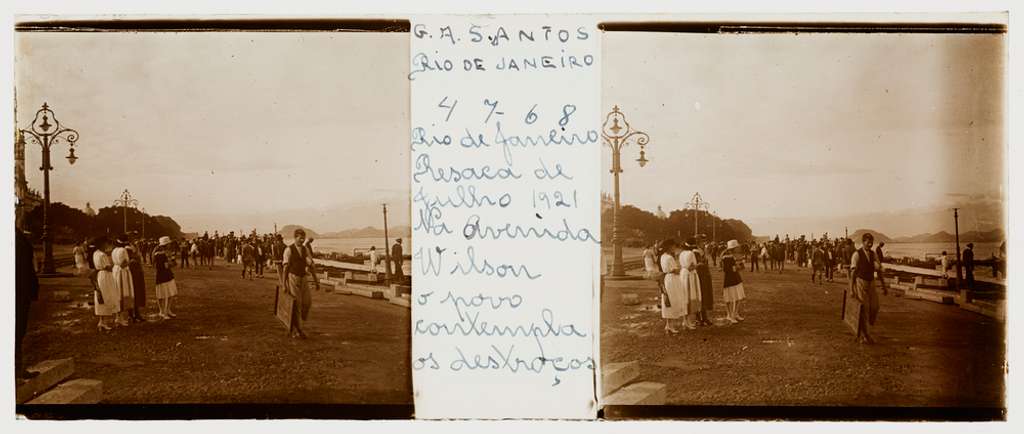 G. A. SANTOS
RIO DE JANEIRO
4 7-6 8
Rio de Janeiro
Resaca de
Julho 1921
Na Avenida
Wilson
o povo
contempla
os destroços